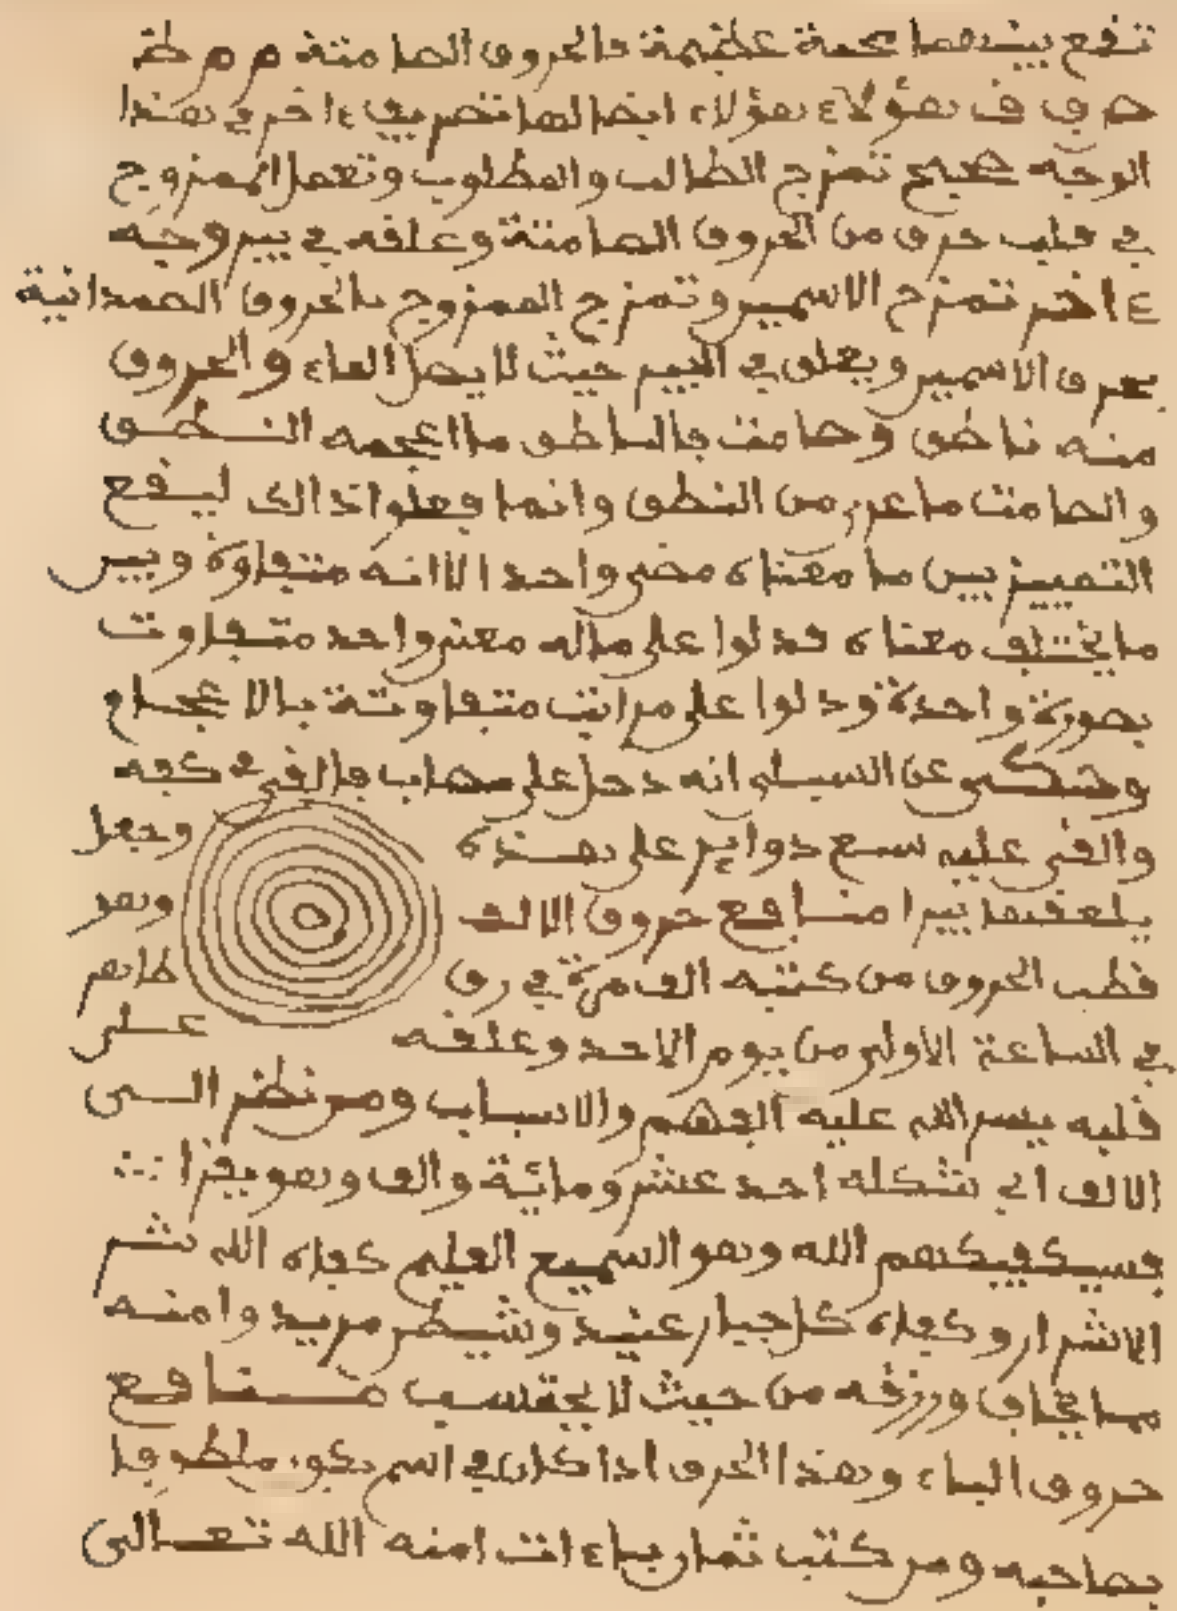 تفع بينهما محبة عظيمة بالحروف الصامتة م م ط
ص ف ف هؤلاء هؤلاء ايضا لها تصريف ءاخر في هذا
الوجه صحيح تمزج الطالب والمطلوب وتعمل الممزوج
في قلب حرف من الحروف الصامتة وعلقه في بير وجه
ءاخر تمزج الاسمين وتمزج الممزوج بالحروف الصمدانية
بحرف الاسمين ويعلق في البير حيث لا يصل الماء والحروف
منه ناطق وصامت فالناطق ما اعجمه النطق
والصامت ما عري من النطق وانما فعلوا ذالك ليفع
التمييز بين ما معناه واحد الا انه متفاوة وبين
ما يختلف معناه فدلوا على ماله معنى واحد متفاوت
بصورة واحدة ودلوا على مراتب متفاوتة بالاعجام
وحكى عن الشبلي انه دخل على فالقى في كفه
والقى عليه سبع دواير على هذه وجعل
منافع حروف الالف وهو
قطب الحروف من كتبه الف مرة في رق طاهر
في الساعة الاولى من يوم الاحد وعلقه على
قلبه يسر الله عليه الفهم والاسباب ومن نظر الى
الالف اي شكله احد عشر ومائة والف وهو يقرا
فسيكفيكهم الله وهو السميع العليم كفاه الله شر
الاشرار وكفاه كل جبار عنيد وشيطن مريد وامنه
مما يخاف ورزقه من حيث لا يحتسب منافع
حروف الباء وهذا الحرف اذا كان في اسم يكون ملطوفا
بصاحبه ومن كتب ثمان باءات امنه الله تعالى